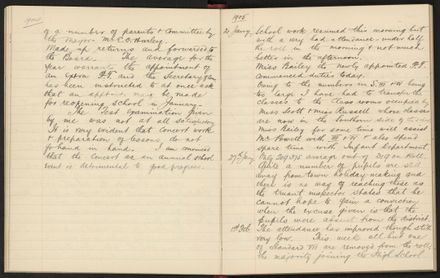 1904
of a number of parents & Committee by
the Mayor Mr C. O.
Made up returns and forwarded to
the Board. The average for the
year warrant the appointment of
an extra P.T. and the Secretary
has been instructed to at once ask
that an be made
for reopening school in January.
The Test Examination given
by me was not at all satisfactory
It is very evident that concert work
& preparation of lessons do not
go hand in hand. I am convinced
that the concert as an annual school
event is detrimental to good progress.
1905
School work resumed this morning but
with a very bad attendance - under half
the roll in the morning & not much
better in the afternoon.
Miss Bailey the newly appointed P.T.
commenced duties today.
Owing to the numbers in being
too large I have had to transfer the
classes to the class rooms occupied by
Miss Scott & Miss Russell whose classes
are now in the Southern side of the
Miss Bailey for some time will assist
Mr with & also spend
spare time with Infant Department.
27th Jany. average out of on Roll.
Quite a number of pupils are still
away from town holiday making and
there is no way of reaching these as
the truant inspector states that he
cannot hope to gain a conviction
when the excuse given is that the
pupils were absent from the district.
Feb. The attendance has improved though still
very low. This week all but one
of Standard VI are removed from the roll,
the majority joining the High School